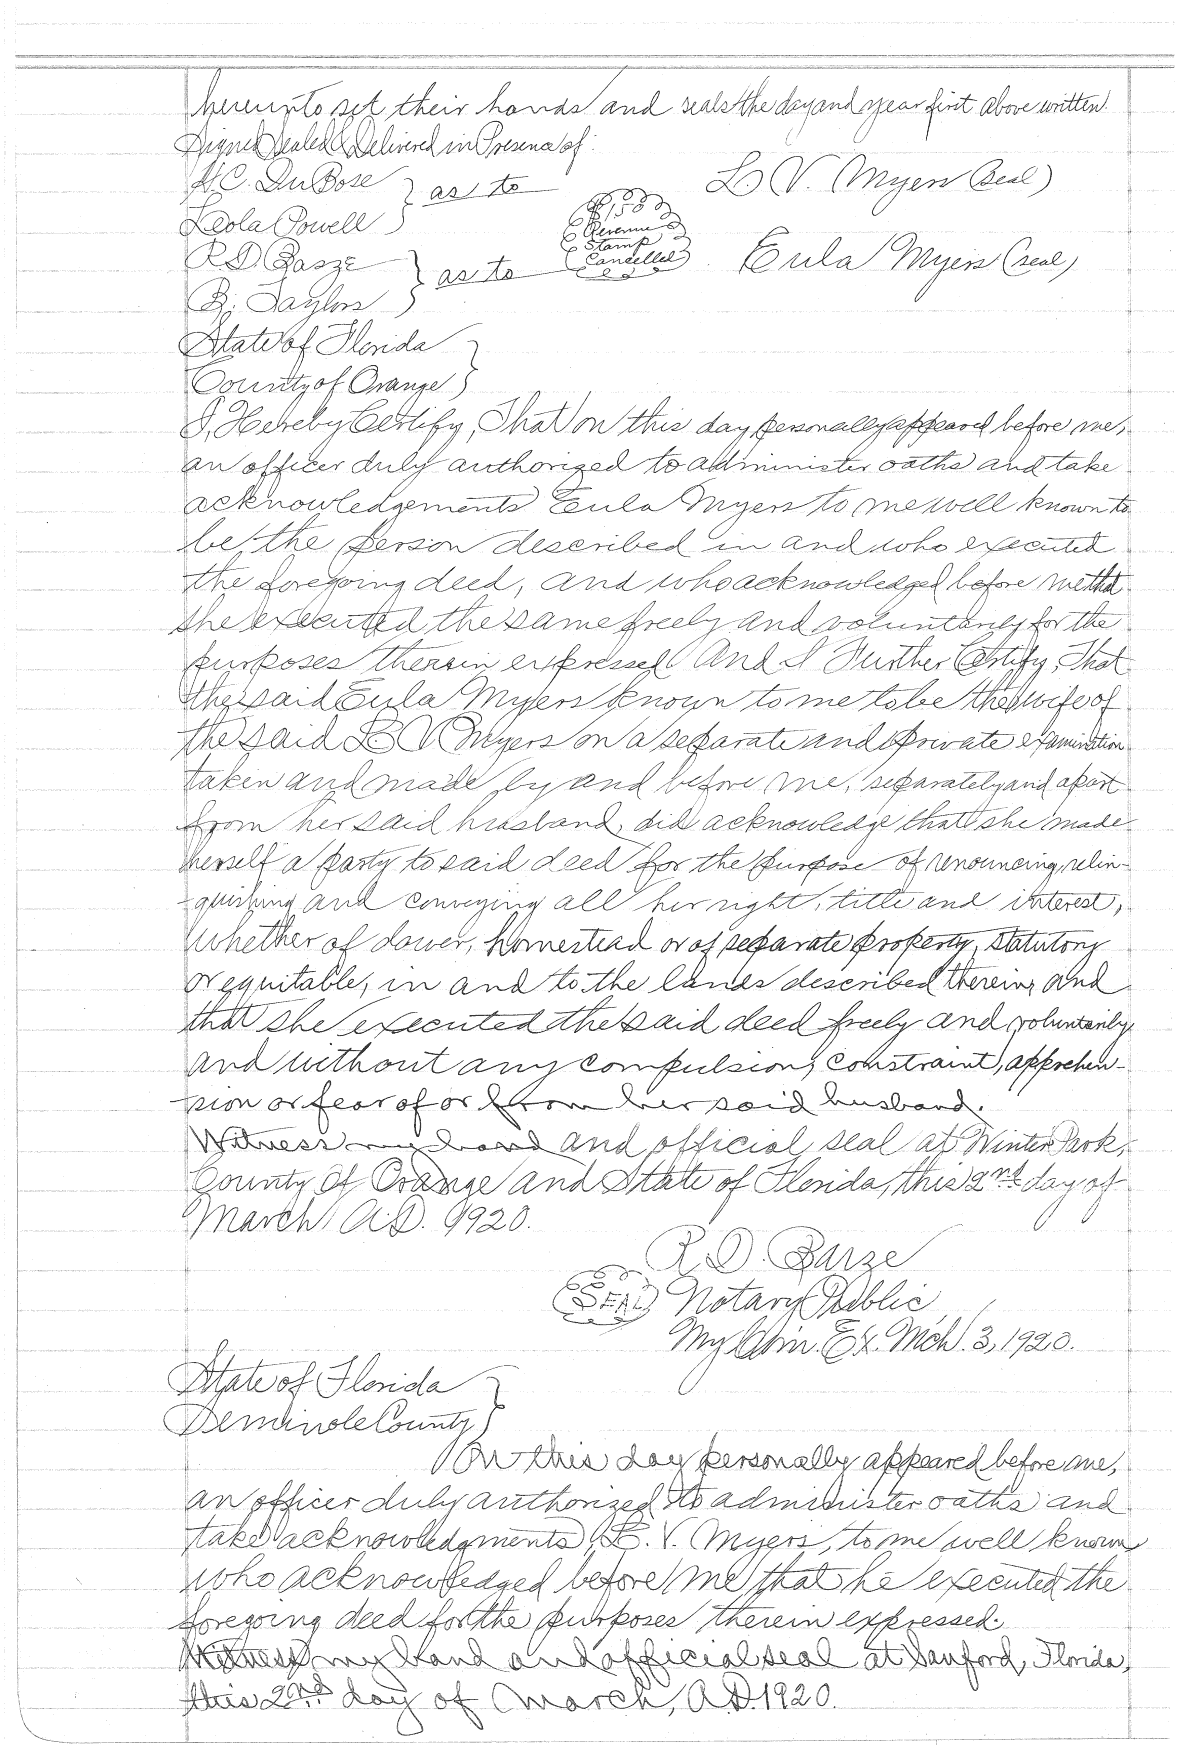 hereunto set their hands and seals the day and year first above written.
Signed Sealed & Delivered in Presence of:
H.C. DuBose } as to L V. Myers (seal)
Leola Powell
$1.50
Revenue
Stamp
Cancelled
R D Barze } as to Eula Myers (seal)
B. Taylor
State of Florida
County of Orange }
I, Hereby Certify, That on this day personally appeared before me,
an officer duly authorized to administer oaths and take
acknowledgements Eula Myers to me well known to
be the person described in and who executed
the foregoing deed, and who acknowledged before me that
she executed the same freely and voluntarily for the
purposes therein expressed And I Further Certify, That
the said Eula Myers known to me to be the wife of
the said L V Myers on a separate and private examination
taken and made by and before me, separately and apart
from her said husband, did acknowledge that she made
herself a party to said deed for the purpose of renouncing, relin-
quishing and conveying all her right, title and interest,
whether of dower, homestead or of separate property, statutory
or equitable, in and to the lands described therein, and
that she executed the said deed freely and voluntarily
and without any compulsion, constraint, apprehen-
sion or fear of or from her said husband.
Witness my hand and official seal at Winter Park,
County of Orange and State of Florida, this 2nd day of
March A.D. 1920.
R. D. Barze
(SEAL) Notary Public
My Com. Ex. Mch. 3, 1920.
State of Florida
Seminole County }
On this day personally appeared before me,
an officer duly authorized to administer oaths and
take acknowledgments, L. V. Myers, to me well known
who acknowledged before me that he executed the
foregoing deed for the purposes therein expressed.
Witness my hand and official seal at Sanford, Florida,
this 2nd day of March, A.D. 1920.